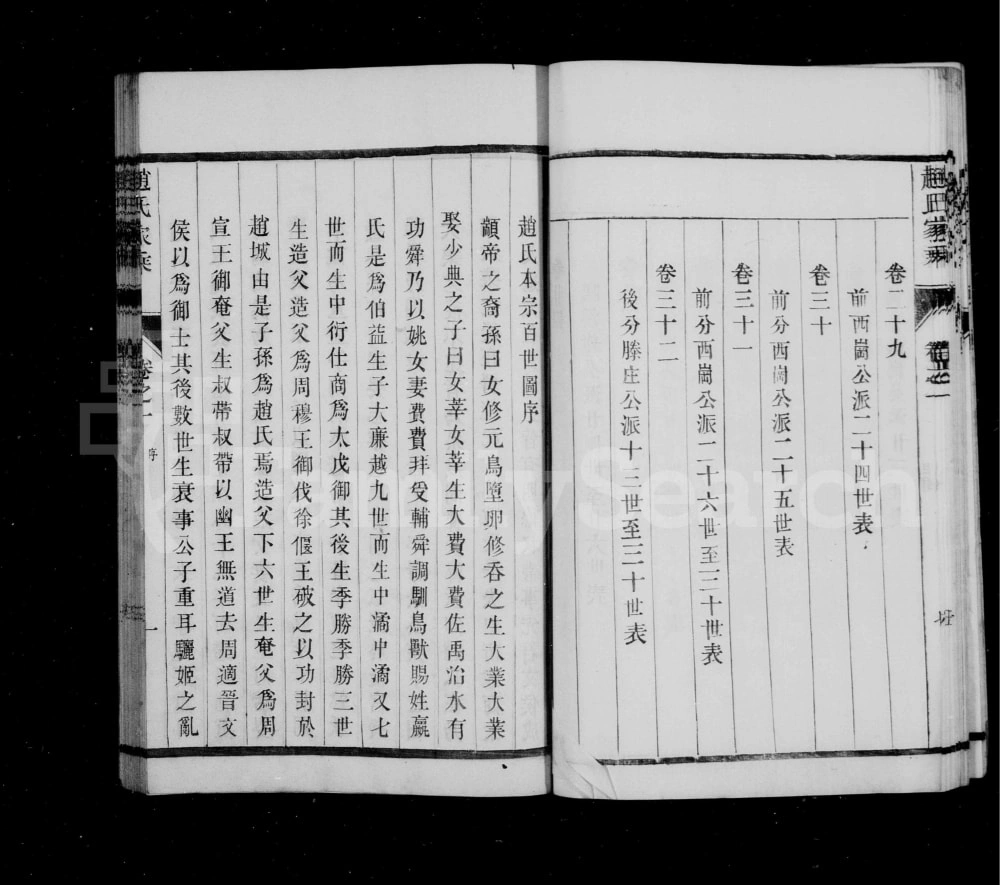 趙氏家乘
卷二十九
前西崗公派二十四世表
卷三十
前分西崗公派二十五世表
卷三十一
前分西崗公派二十六世至三十世表
卷三十二
後分滕庄公派十三世至三十世表
趙氏本宗百世圖序
顓帝之裔孫曰女修元鳥墮卵修吞之生大業大業
娶少典之子曰女莘女莘生大費大費佐禹治水有
功舜乃以姚女妻費費拜受輔舜調馴鳥獸賜姓嬴
氏是爲伯益生子大廉越九世而生中潏中潏又七
世而生中衍仕商爲太戊御其後生季勝季勝三世
生造父造父爲周穆王御伐徐偃王破之以功封於
趙城由是子孫爲趙氏焉造父下六世生奄父爲周
宣王御奄父生叔帶叔帶以幽王無道去周適晉文
侯以爲御士其後數世生衰事公子重耳驪姬之亂
趙氏家乘
卷之一
序
一
FamilySearch